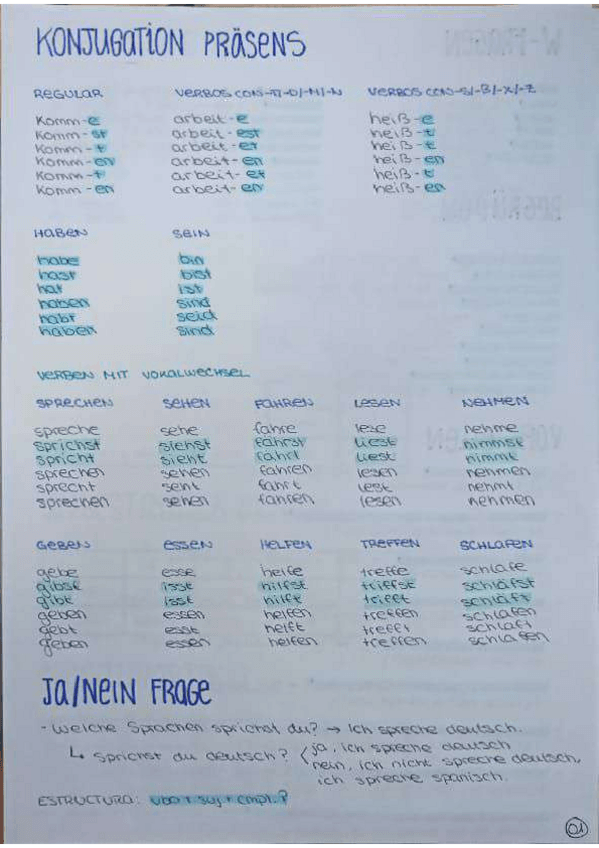 KONJUGATION PRÄSENS
REGULAR VERBOS CON -T/-D/-M/-N VERBOS CON -S/-ß/-X/-Z
komm-e arbeit-e heiß-e
komm-st arbeit-est heiß-t
komm-t arbeit-et heiß-t
komm-en arbeit-en heiß-en
komm-t arbeit-et heiß-t
komm-en arbeit-en heiß-en
HABEN SEIN
habe bin
hast bist
hat ist
haben sind
habt seid
haben sind
VERBEN MIT VOKALWECHSEL
SPRECHEN SEHEN FAHREN LESEN NEHMEN
spreche sehe fahre lese nehme
sprichst siehst fährst liest nimmst
spricht sieht fährt liest nimmt
sprechen sehen fahren lesen nehmen
sprecht seht fahrt lest nehmt
sprechen sehen fahren lesen nehmen
GEBEN ESSEN HELFEN TREFFEN SCHLAFEN
gebe esse helfe treffe schlafe
gibst isst hilfst triffst schläfst
gibt isst hilft trifft schläft
geben essen helfen treffen schlafen
gebt esst helft trefft schlaft
geben essen helfen treffen schlafen
JA/NEIN FRAGE
- Welche Sprachen sprichst du? → Ich spreche deutsch.
↳ Sprichst du deutsch? ja, ich spreche deutsch
nein, ich nicht spreche deutsch,
ich spreche spanisch.
ESTRUCTURA: vbo + suj + cmpl.?
01